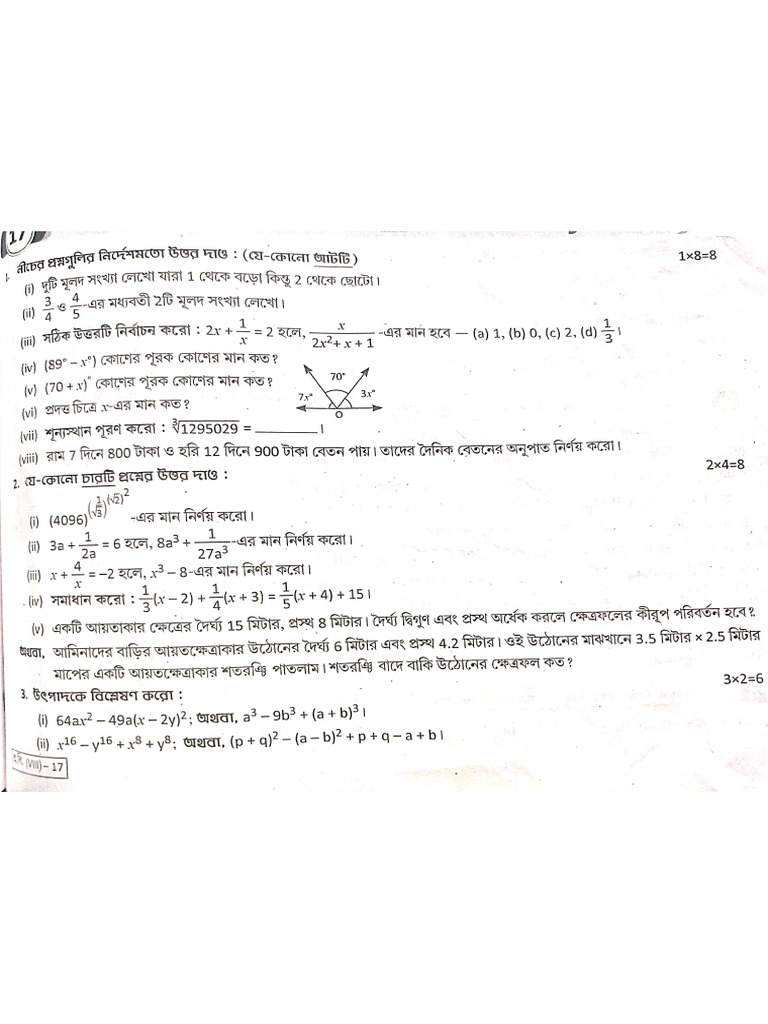 17
1. নীচের প্রশ্নগুলির নির্দেশমতো উত্তর দাও : (যে-কোনো আটটি) 1×8=8
(i) দুটি মূলদ সংখ্যা লেখো যারা 1 থেকে বড়ো কিন্তু 2 থেকে ছোটো।
(ii) 3/4 ও 4/5-এর মধ্যবর্তী 2টি মূলদ সংখ্যা লেখো।
(iii) সঠিক উত্তরটি নির্বাচন করো : 2x + 1/x = 2 হলে, x/(2x² + x + 1) -এর মান হবে — (a) 1, (b) 0, (c) 2, (d) 1/3।
(iv) (89° – x°) কোণের পূরক কোণের মান কত?
(v) (70 + x)° কোণের পূরক কোণের মান কত?
(vi) প্রদত্ত চিত্রে x-এর মান কত?
70°
7x° 3x°
O
(vii) শূন্যস্থান পূরণ করো : ∛1295029 = ________।
(viii) রাম 7 দিনে 800 টাকা ও হরি 12 দিনে 900 টাকা বেতন পায়। তাদের দৈনিক বেতনের অনুপাত নির্ণয় করো।
2. যে-কোনো চারটি প্রশ্নের উত্তর দাও : 2×4=8
(i) (4096)^(1/√3)^(√2)² -এর মান নির্ণয় করো।
(ii) 3a + 1/2a = 6 হলে, 8a³ + 1/27a³-এর মান নির্ণয় করো।
(iii) x + 4/x = –2 হলে, x³ – 8-এর মান নির্ণয় করো।
(iv) সমাধান করো : 1/3(x – 2) + 1/4(x + 3) = 1/5(x + 4) + 15।
(v) একটি আয়তাকার ক্ষেত্রের দৈর্ঘ্য 15 মিটার, প্রস্থ 8 মিটার। দৈর্ঘ্য দ্বিগুণ এবং প্রস্থ অর্ধেক করলে ক্ষেত্রফলের কীরূপ পরিবর্তন হবে?
অথবা, আমিনাদের বাড়ির আয়তক্ষেত্রাকার উঠোনের দৈর্ঘ্য 6 মিটার এবং প্রস্থ 4.2 মিটার। ওই উঠোনের মাঝখানে 3.5 মিটার × 2.5 মিটার
মাপের একটি আয়তক্ষেত্রাকার শতরঞ্চি পাতলাম। শতরঞ্চি বাদে বাকি উঠোনের ক্ষেত্রফল কত?
3. উৎপাদকে বিশ্লেষণ করো : 3×2=6
(i) 64ax² – 49a(x – 2y)²; অথবা, a³ – 9b³ + (a + b)³।
(ii) x¹⁶ – y¹⁶ + x⁸ + y⁸; অথবা, (p + q)² – (a – b)² + p + q – a + b।
(VIII) – 17